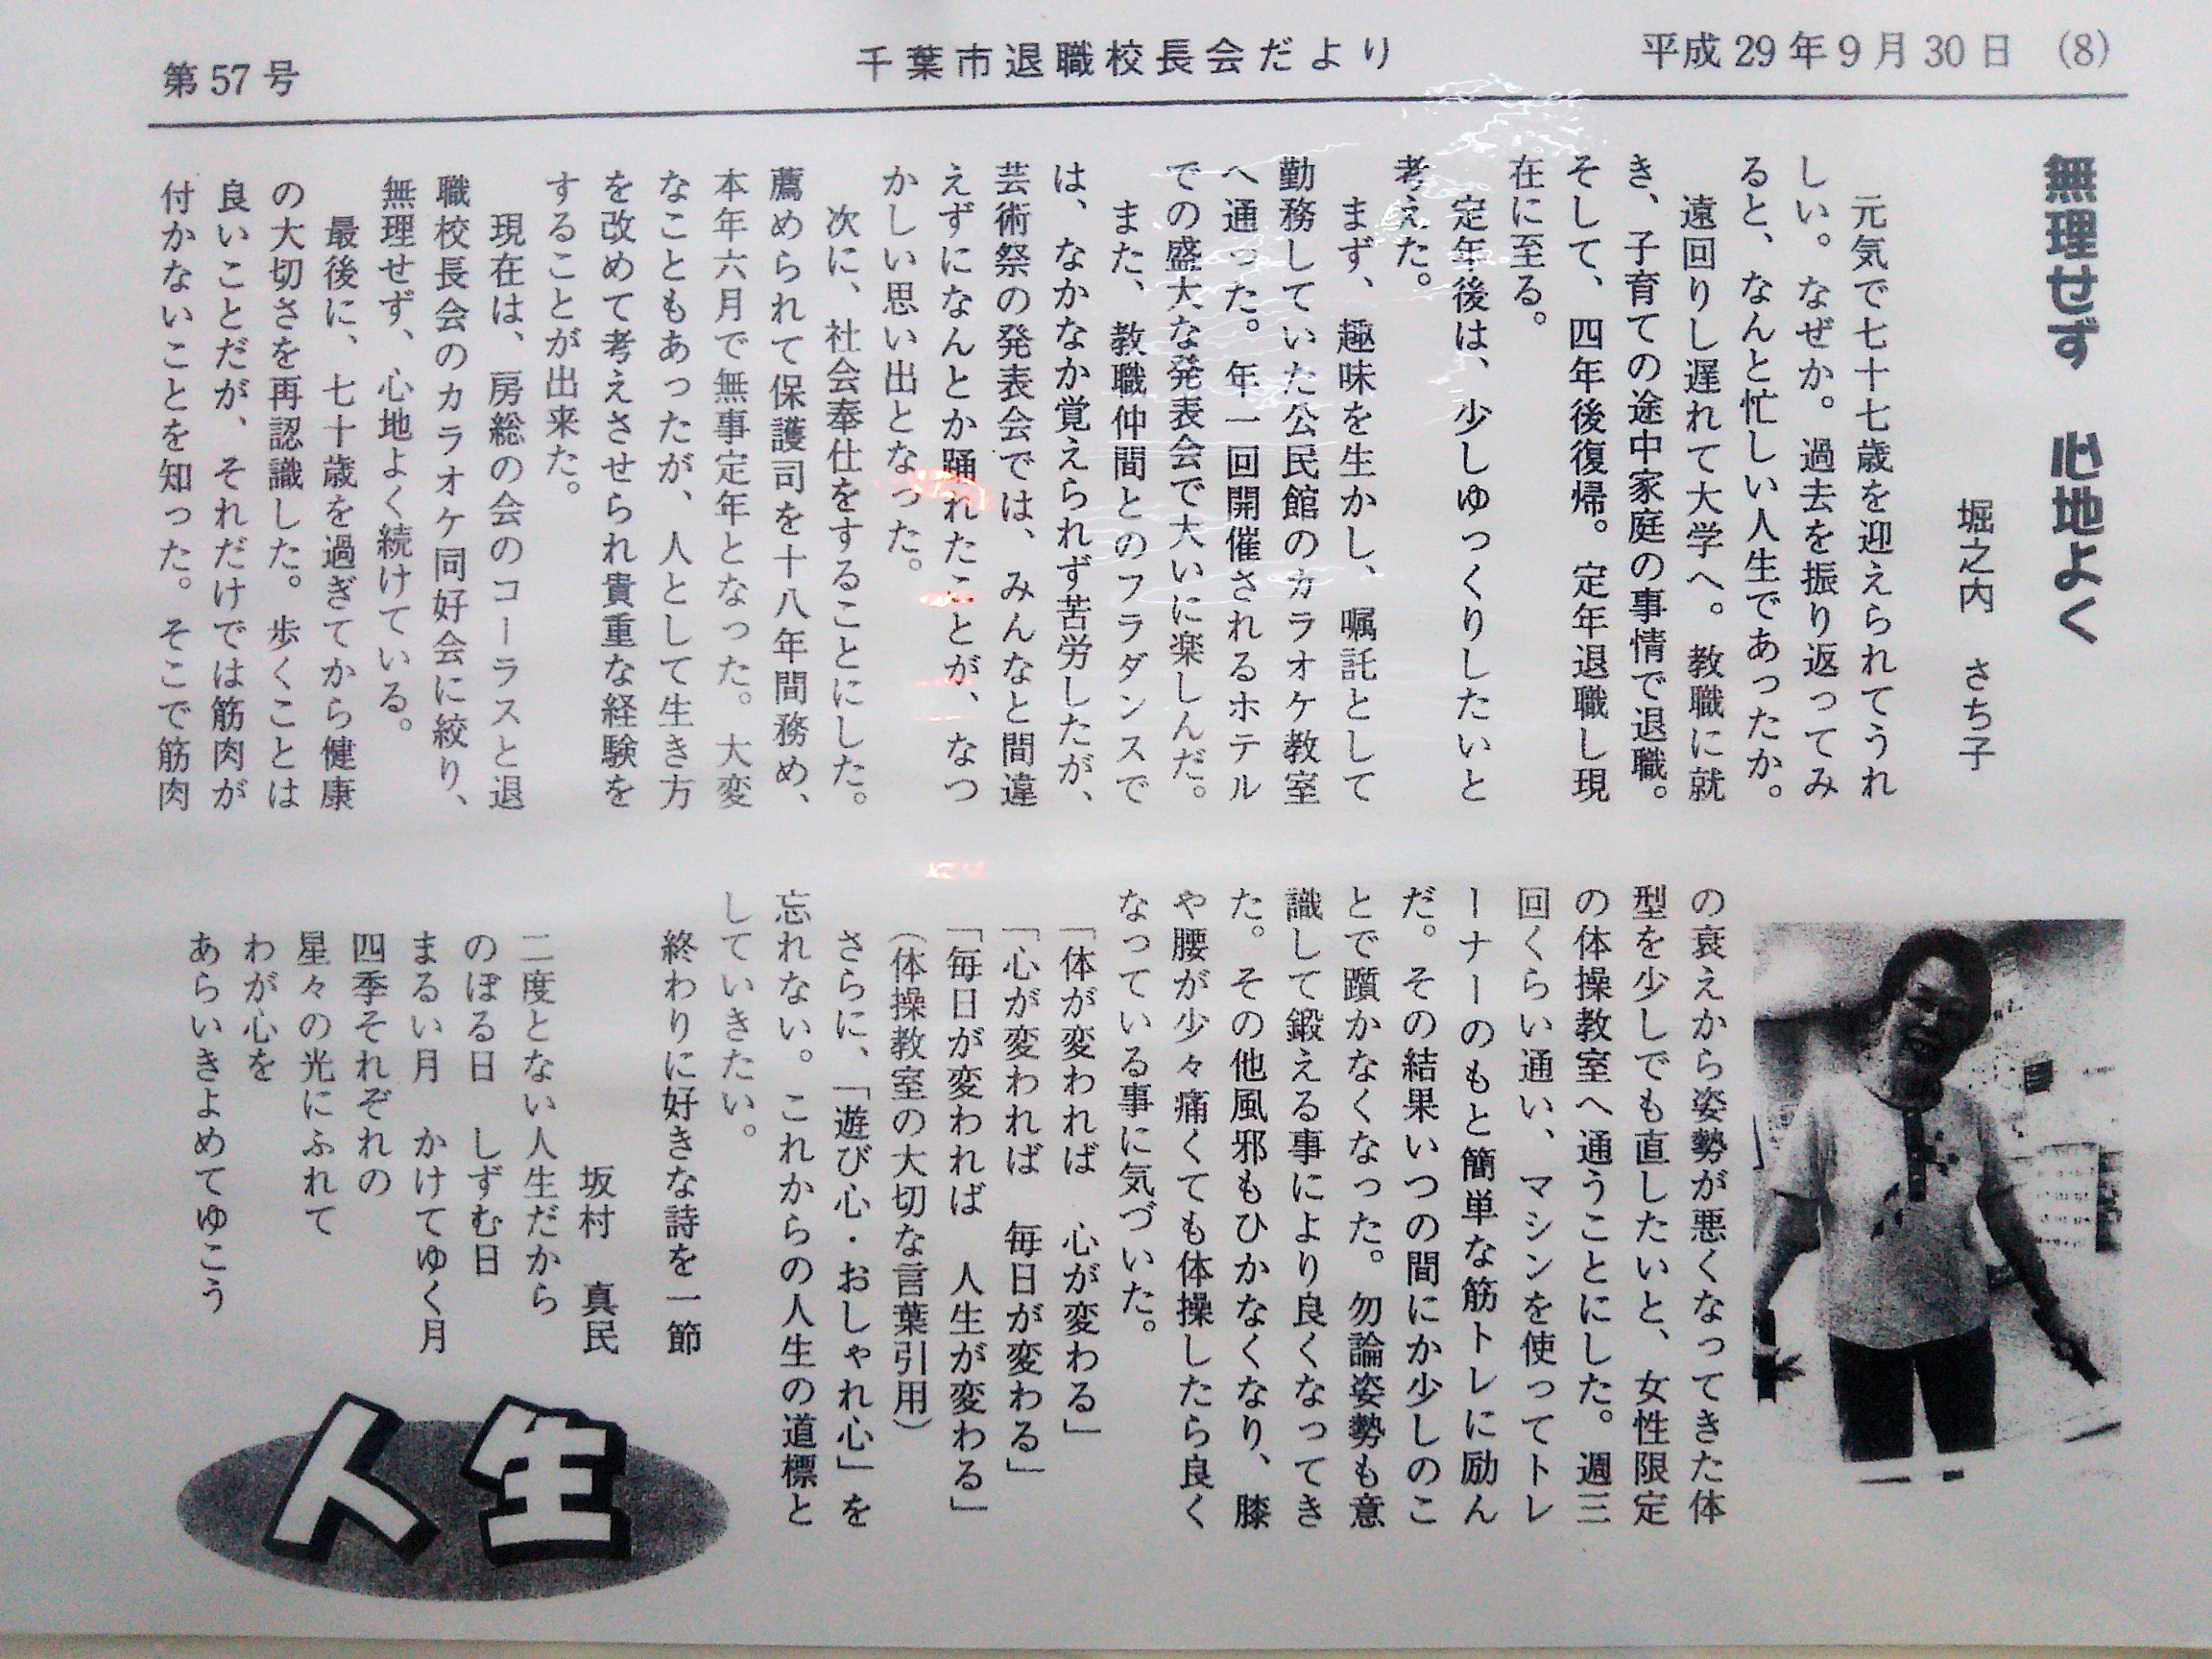 第57号
千葉市退職校長会だより
平成29年9月30日 (8)
無理せず 心地よく
堀之内 さち子
元気で七十七歳を迎えられてうれ
しい。なぜか。過去を振り返ってみ
ると、なんと忙しい人生であったか。
遠回りし遅れて大学へ。教職に就
き、子育ての途中家庭の事情で退職。
そして、四年後復帰。定年退職し現
在に至る。
定年後は、少しゆっくりしたいと
考えた。
まず、趣味を生かし、嘱託として
勤務していた公民館のカラオケ教室
へ通った。年一回開催されるホテル
での盛大な発表会で大いに楽しんだ。
また、教職仲間とのフラダンスで
は、なかなか覚えられず苦労したが、
芸術祭の発表会では、みんなと間違
えずになんとか踊れたことが、なつ
かしい思い出となった。
次に、社会奉仕をすることにした。
薦められて保護司を十八年間務め、
本年六月で無事定年となった。大変
なこともあったが、人として生き方
を改めて考えさせられ貴重な経験を
することが出来た。
現在は、房総の会のコーラスと退
職校長会のカラオケ同好会に絞り、
無理せず、心地よく続けている。
最後に、七十歳を過ぎてから健康
の大切さを再認識した。歩くことは
良いことだが、それだけでは筋肉が
付かないことを知った。そこで筋肉
の衰えから姿勢が悪くなってきた体
型を少しでも直したいと、女性限定
の体操教室へ通うことにした。週三
回くらい通い、マシンを使ってトレ
ーナーのもと簡単な筋トレに励ん
だ。その結果いつの間にか少しのこ
とで躓かなくなった。勿論姿勢も意
識して鍛える事により良くなってき
た。その他風邪もひかなくなり、膝
や腰が少々痛くても体操したら良く
なっている事に気づいた。
「体が変われば 心が変わる」
「心が変われば 毎日が変わる」
「毎日が変われば 人生が変わる」
(体操教室の大切な言葉引用)
さらに、「遊び心・おしゃれ心」を
忘れない。これからの人生の道標と
していきたい。
終わりに好きな詩を一節
坂村 真民
二度とない人生だから
のぼる日 しずむ日
まるい月 かけてゆく月
四季それぞれの
星々の光にふれて
わが心を
あらいきよめてゆこう
人生